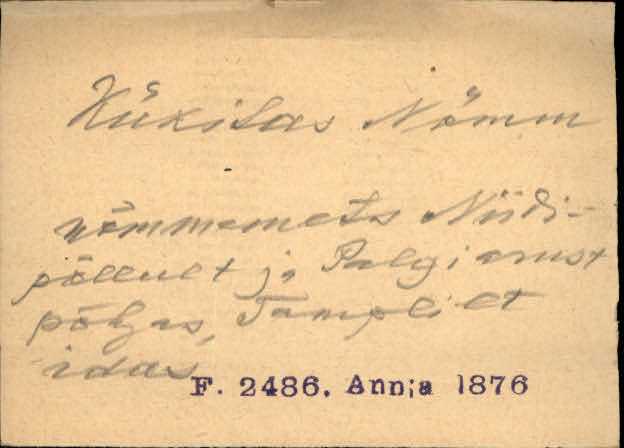 Kükitas Nõmm
nõmmemets Niidi-
põllult ja Palgi arust
põhjas, Tamplilt
idas
F. 2486. Ann;a 1876